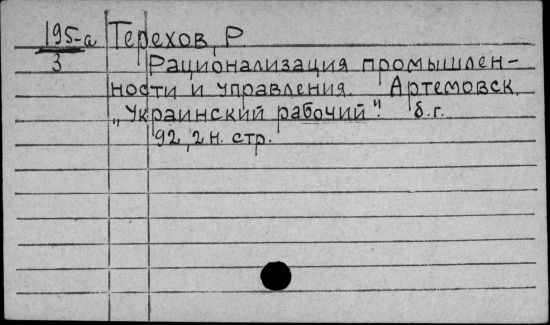 195-а Терехов, Р
3 Рационализация промышлен-
ности и управления. Артемовск,
„Украинский рабочий". б.г.
92, 2 н. стр.